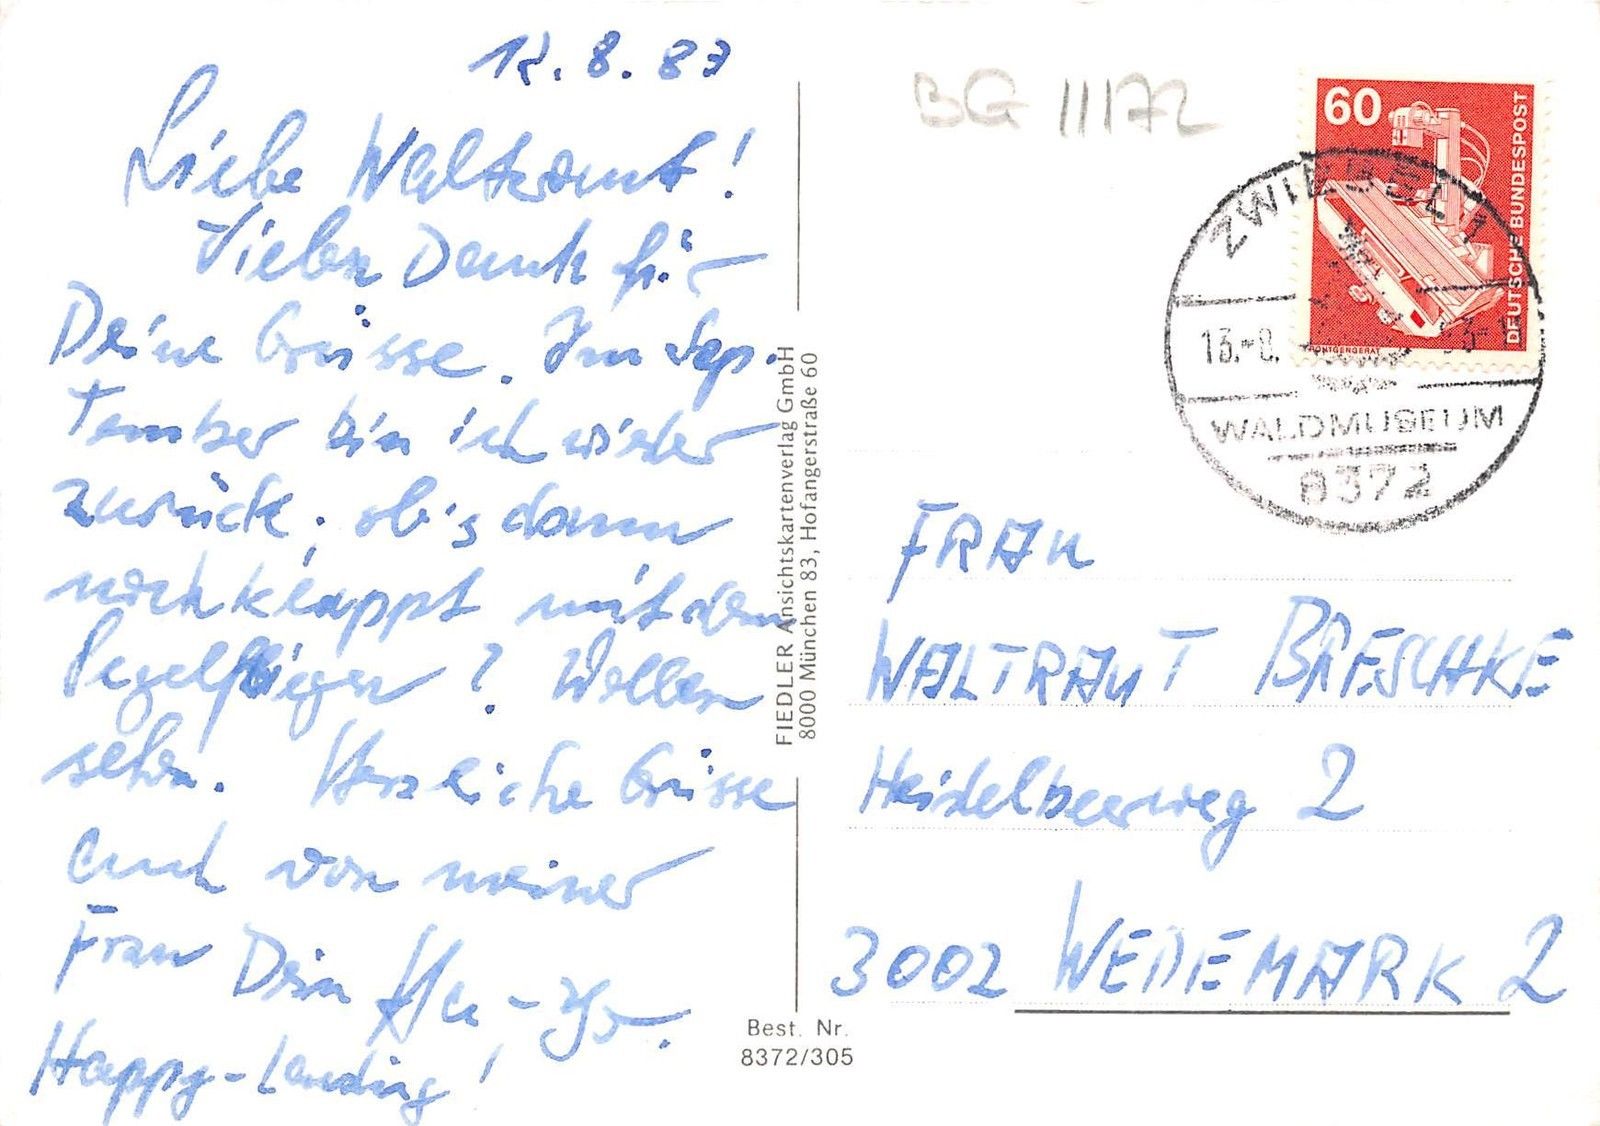 12.8.83
Liebe Waltraut!
Vielen Dank für
Deine Grüsse. Im Sep-
tember bin ich wieder
zurück, ob's dann
noch klappt mit dem
Segelfliegen? Wollen
sehen. Herzliche Grüsse
auch von meiner
Frau Dein
Happy-Landing!
FIEDLER Ansichtskartenverlag GmbH
8000 München 83, Hofangerstraße 60
Best. Nr.
8372/305
BG 11172
60
DEUTSCHE BUNDESPOST
RÖNTGENGERÄT
ZWIESEL 1
13.-8. 83-
WALDMUSEUM
8372
FRAU
WALTRAUT BRESCHKE
Heidelbeerweg 2
3002 WEDEMARK 2